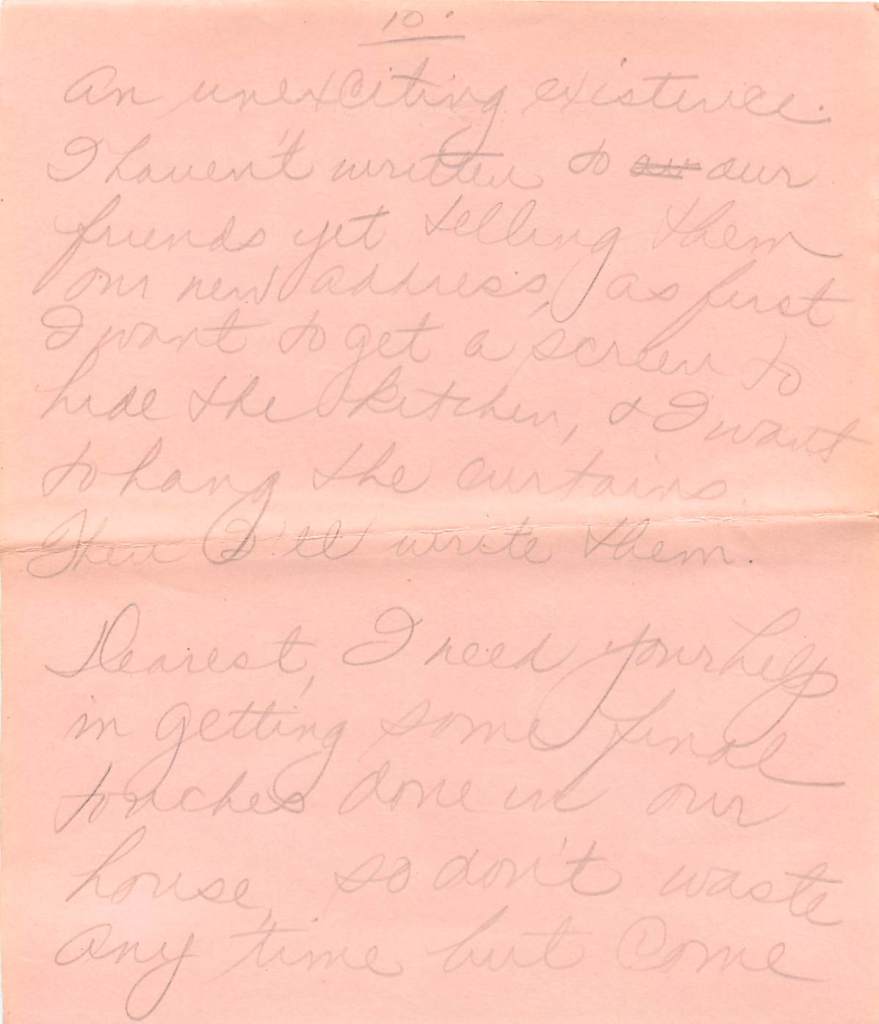 10.
an unexciting existence.
I haven't written to our
friends yet telling them
our new address, as first
I want to get a screen to
hide the kitchen, & I want
to hang the curtains.
Then I'll write them.
Dearest, I need your help
in getting some final
touches done in our
house, so don't waste
any time but come